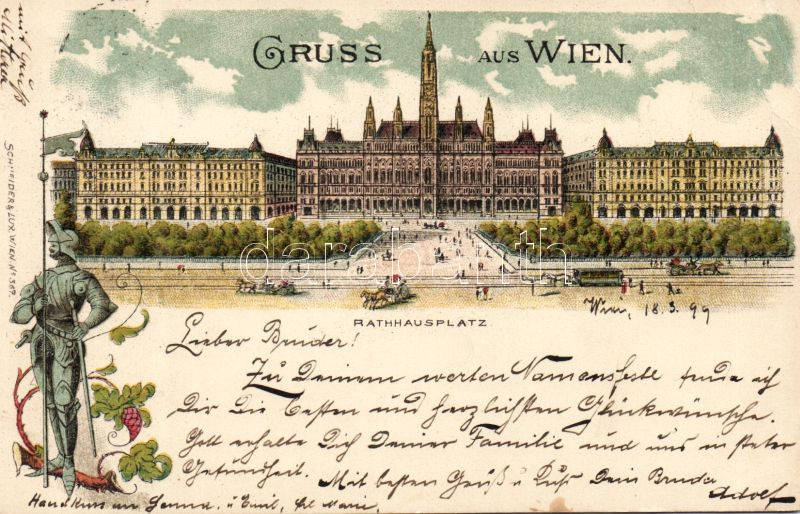 GRUSS AUS WIEN.
SCHNEIDER & LUX, WIEN. No 569.
darabanth
RATHHAUSPLATZ.
Wien, 18.3.99
Lieber Bruder!
Zu Deinem werten Namensfeste sende ich
Dir die besten und herzlichsten Glückwünsche.
Gott erhalte Dich Deiner Familie und uns in steter
Gesundheit. Mit besten Gruß u Kuß Dein Bruder
Adolf
Handkuss an u Emil, Marie
mit Gruß